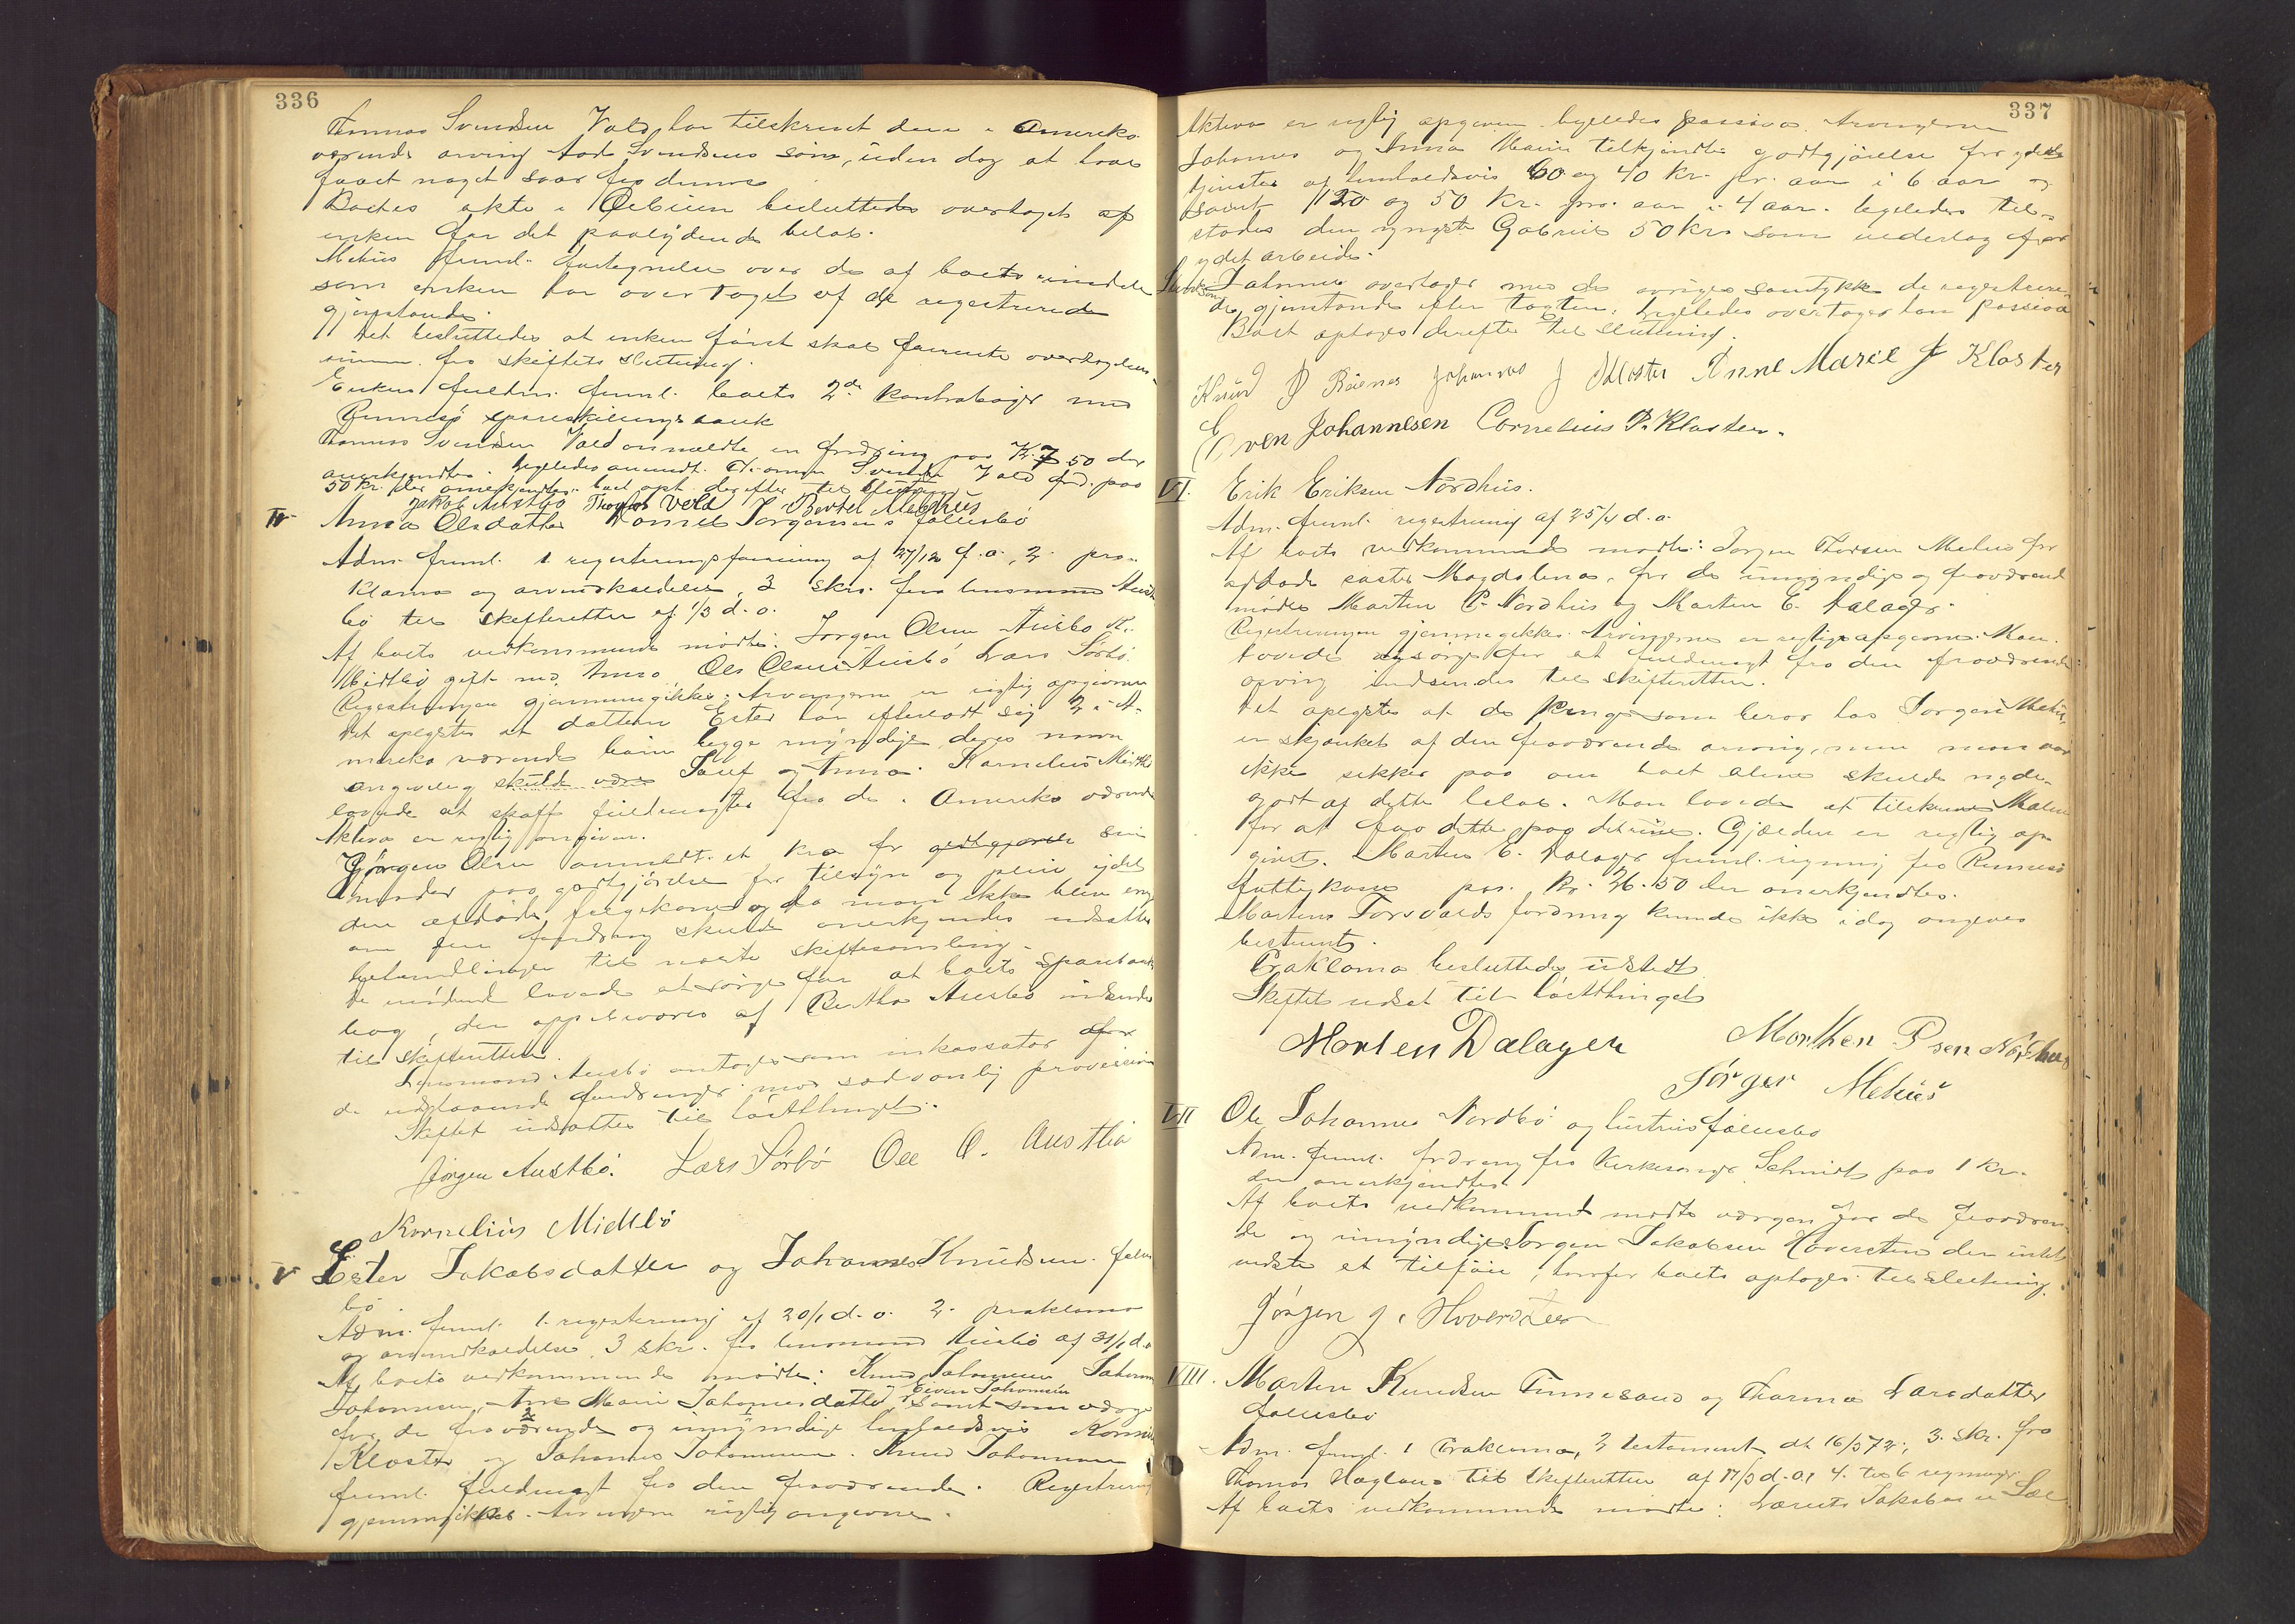 336
Thomas Svendsen Vold har tilskrevet den i Amerika
værende arving Aad Svendsens søn, uden dog at have
faaet noget svar fra denne
Boets akte i Oebium besluttedes overtaget af
enken for det paalydende beløb.
Mehus freml. fortegnelse over de af boets eiendele
som enken har overtaget af de registrerede
gjenstande.
Det besluttedes at enken først skal forrente overtagelses-
summen fra skiftets slutning.
Enkens fuldm. freml. boets 2de kontrabøger med
Rennesø spareskillingsbank
Thomas Svendsen Vold anmeldte en fordring paa Kr. 7.50 der
anerkjendtes. Ligeledes anmeldt. Thomas Svendsen Vold ford. paa
50 kr. der anerkjendtes. boet opt. derefter til slutning
Jakob Austbø Thomas Vold Bertel Mehus
IV Anna Olsdatter Daniel Jørgensens fællesbo
Adm. freml. 1 registreringsforretning af 27/12 f.a., 2. pro-
klama og arveindkaldelse, 3 skr. fra lensmand Aust-
bø til skifteretten af 1/3 d.a.
Af boets vedkommende mødte: Jørgen Olsen Austbø K.
Midtbø gift med Anna, Ole Olsen Austbø Lars Sørbø.
Registreringen gjennemgikkes. Arvingerne er rigtig opgivne
Det oplystes at datteren Ester har efterladt sig 2 i A-
merika værende børn begge myndige, deres navn
angivelig skulde være Josef og Anna. Kornelius Midtbø
lovede at skaffe fuldmagter fra de i Amerika værende
Aktiva er rigtig angiven.
Jørgen Olsen anmeldte et krav for godtgjørelse sin
moder paa godtgjørelse for tilsyn og pleie ydet
den afdøde føllgekone og da man ikke blev enig
om den fordring skulde anerkjendes udsattes
behandlingen til næste skiftesamling.
De mødende lovede at sørge for at boets sparebank-
bog, der opbevares af Bertha Austbø indsendes
til skifteretten.
Lensmand Austbø antages som inkassator for
de udestaaende fordringer mod sædvanlig provision
Skiftet udsattes til høstthinget.
Jørgen Austbø. Lars Sørbø Ole O. Austbø
Kornelius Midtbø
V Ester Jakobsdatter og Johannes Knudsens fælles
bo
Adm. freml. 1. registrering af 20/1 d.a. 2. proklama
og arveindkaldelse, 3 skr. fra lensmand Austbø af 31/1 d.a
Af boets vedkommende mødte: Knud Johannesen Johannes
Johannesen, Ane Marie Johannesdatter, Even Johannesen samt som værge
for de fraværende og umyndige henholdsvis Kornelius
Kloster og Johannes Johannesen. Knud Johannesen
freml. fuldmagt fra den fraværende. Registrering
gjennemgikkes. Arvingerne rigtig angivne.
337
Aktiva er rigtig opgiven ligeledes passiva. Arvingerne
Johannes og Anna Marie tilkjendtes godtgjørelse for ydede
tjenester af henholdsvis 60 og 40 kr. pr. aar i 6 aar og
samt 120 og 50 Kr. pro. aar i 4 aar. ligeledes til-
stodes den yngste Gabriel 50 kr. som vederlag for
ydet arbeide.
Johannes overtager med de øvriges samtykke de registrere-
de gjenstande efter taxten, ligeledes overtager han passiva
Boet optoges derefter til slutning.
Knud J Reienes Johannes J Kloster Anne Marie J Kloster
Even Johannesen Cornelius P. Kloster.
VI. Erik Eriksen Nordhus.
Adm. freml. registrering af 25/4 d.a.
Af boets vedkommende mødte: Jørgen Thorsen Mehus for
afdøde søster Magdalena, for de umyndige og fraværende
mødte Morten P. Nordhus og Morten E. Dalager.
Registreringen gjennemgikkes. Arvingerne er rigtige opgivne. Man
lovede at sørge for at fuldmagt fra den fraværende
arving indsendes til skifteretten.
Det oplystes at de penge som beror hos Jørgen Mehus
er skjænket af den fraværende arving, men man var
ikke sikker paa om boet alene skulde nyde
godt af dette beløb. Man lovede at tilskrive Malene
for at faa dette paa det rene. Gjælden er rigtig op-
givet. Morten E. Dalager freml. regning fra Rennesø
fattigkasse paa Kr. 26.50 der anerkjendtes.
Martin Torsvolds fordring kunde ikke idag angives
bestemt.
Proklama besluttedes udstedt
Skiftet udsat til høstthinget
Morten Dalager Morthen Psen Nordhus
Jørgen Mehus
VII Ole Johannes Nordbø og hustrus fællesbo
Adm. freml. fordring fra kirkesanger Schmidt paa 1 kr.
der anerkjendtes.
Af boets vedkommende mødte værgen for de fraværen-
de og umyndige Jørgen Jakobsen Hoversten der intet
vidste at tilføie, hvorfor boet optoges til slutning.
Jørgen J. Hoversteen
VIII. Morten Knudsen Finnesand og Thorma Larsdatter
fællesbo
Adm. freml. 1 Proklama, 2 testament dt 16/5 72, 3. skr. fra
Thomas Hagland til skifteretten af 17/3 d.a., 4. til 6 regninger
Af boets vedkommende mødte: Laurits Jakobsen